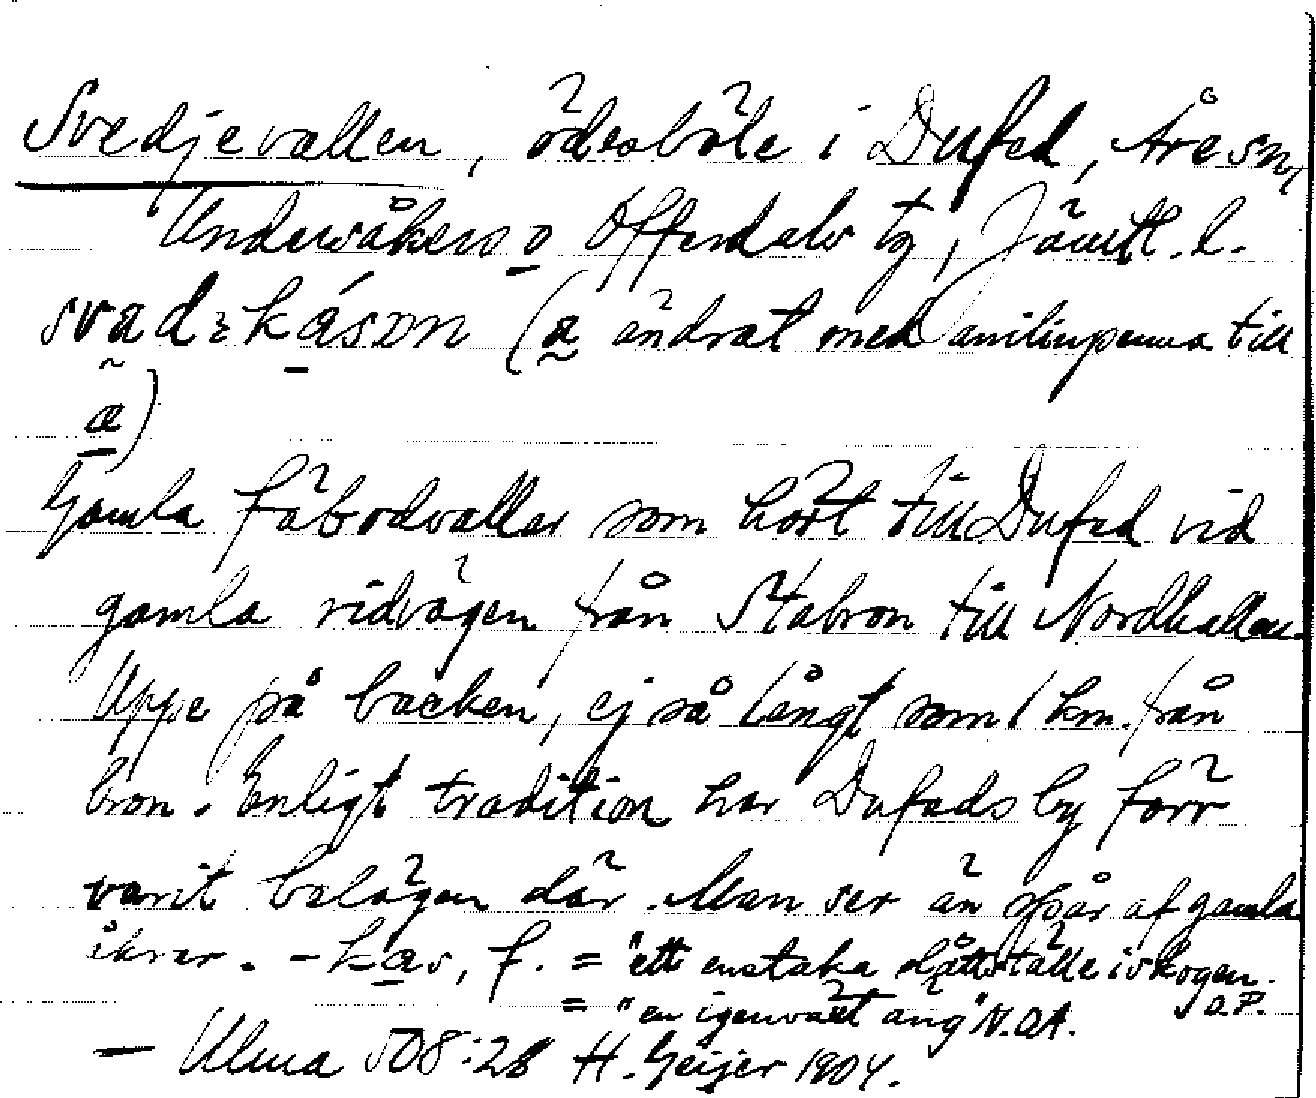 Svedjevallen, ödesböle i Dufed, Åre sn,
Undersåkers o Offerdals tg, Jämtl. l.
(a ändrat med anilinpenna till
æ)
Gamla fäbodvallar som hört till Dufed vid
gamla ridvägen från Stabron till Nordhallen.
Uppe på backen, ej så långt som 1 km. från
bron. Enligt tradition har Dufeds by förr
varit belägen där. Man ser än spår af gamla
åkrar. - kas, f. = "ett enstaka slåttställe i skogen.
O.P.
= "en igenväxt äng" N.O.A.
— Ulma 508:28 H. Geijer 1904.